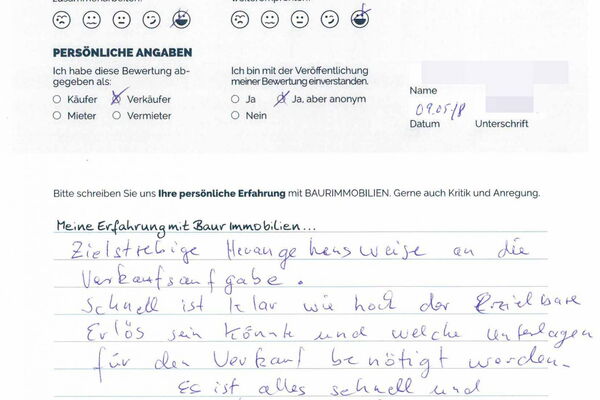 zusammenarbeiten?
weiterempfehlen?
PERSÖNLICHE ANGABEN
Ich habe diese Bewertung ab-
gegeben als:
Käufer Verkäufer
Mieter Vermieter
Ich bin mit der Veröffentlichung
meiner Bewertung einverstanden.
Ja Ja, aber anonym
Nein
Name
09.05.18
Datum Unterschrift
Bitte schreiben Sie uns Ihre persönliche Erfahrung mit BAURIMMOBILIEN. Gerne auch Kritik und Anregung.
Meine Erfahrung mit Baur Immobilien...
Zielstrebige Herangehensweise an die
Verkaufsaufgabe.
Schnell ist klar wie hoch der Erzielbare
Erlös sein könnte und welche Unterlagen
für den Verkauf benötigt werden.
Es ist alles schnell und